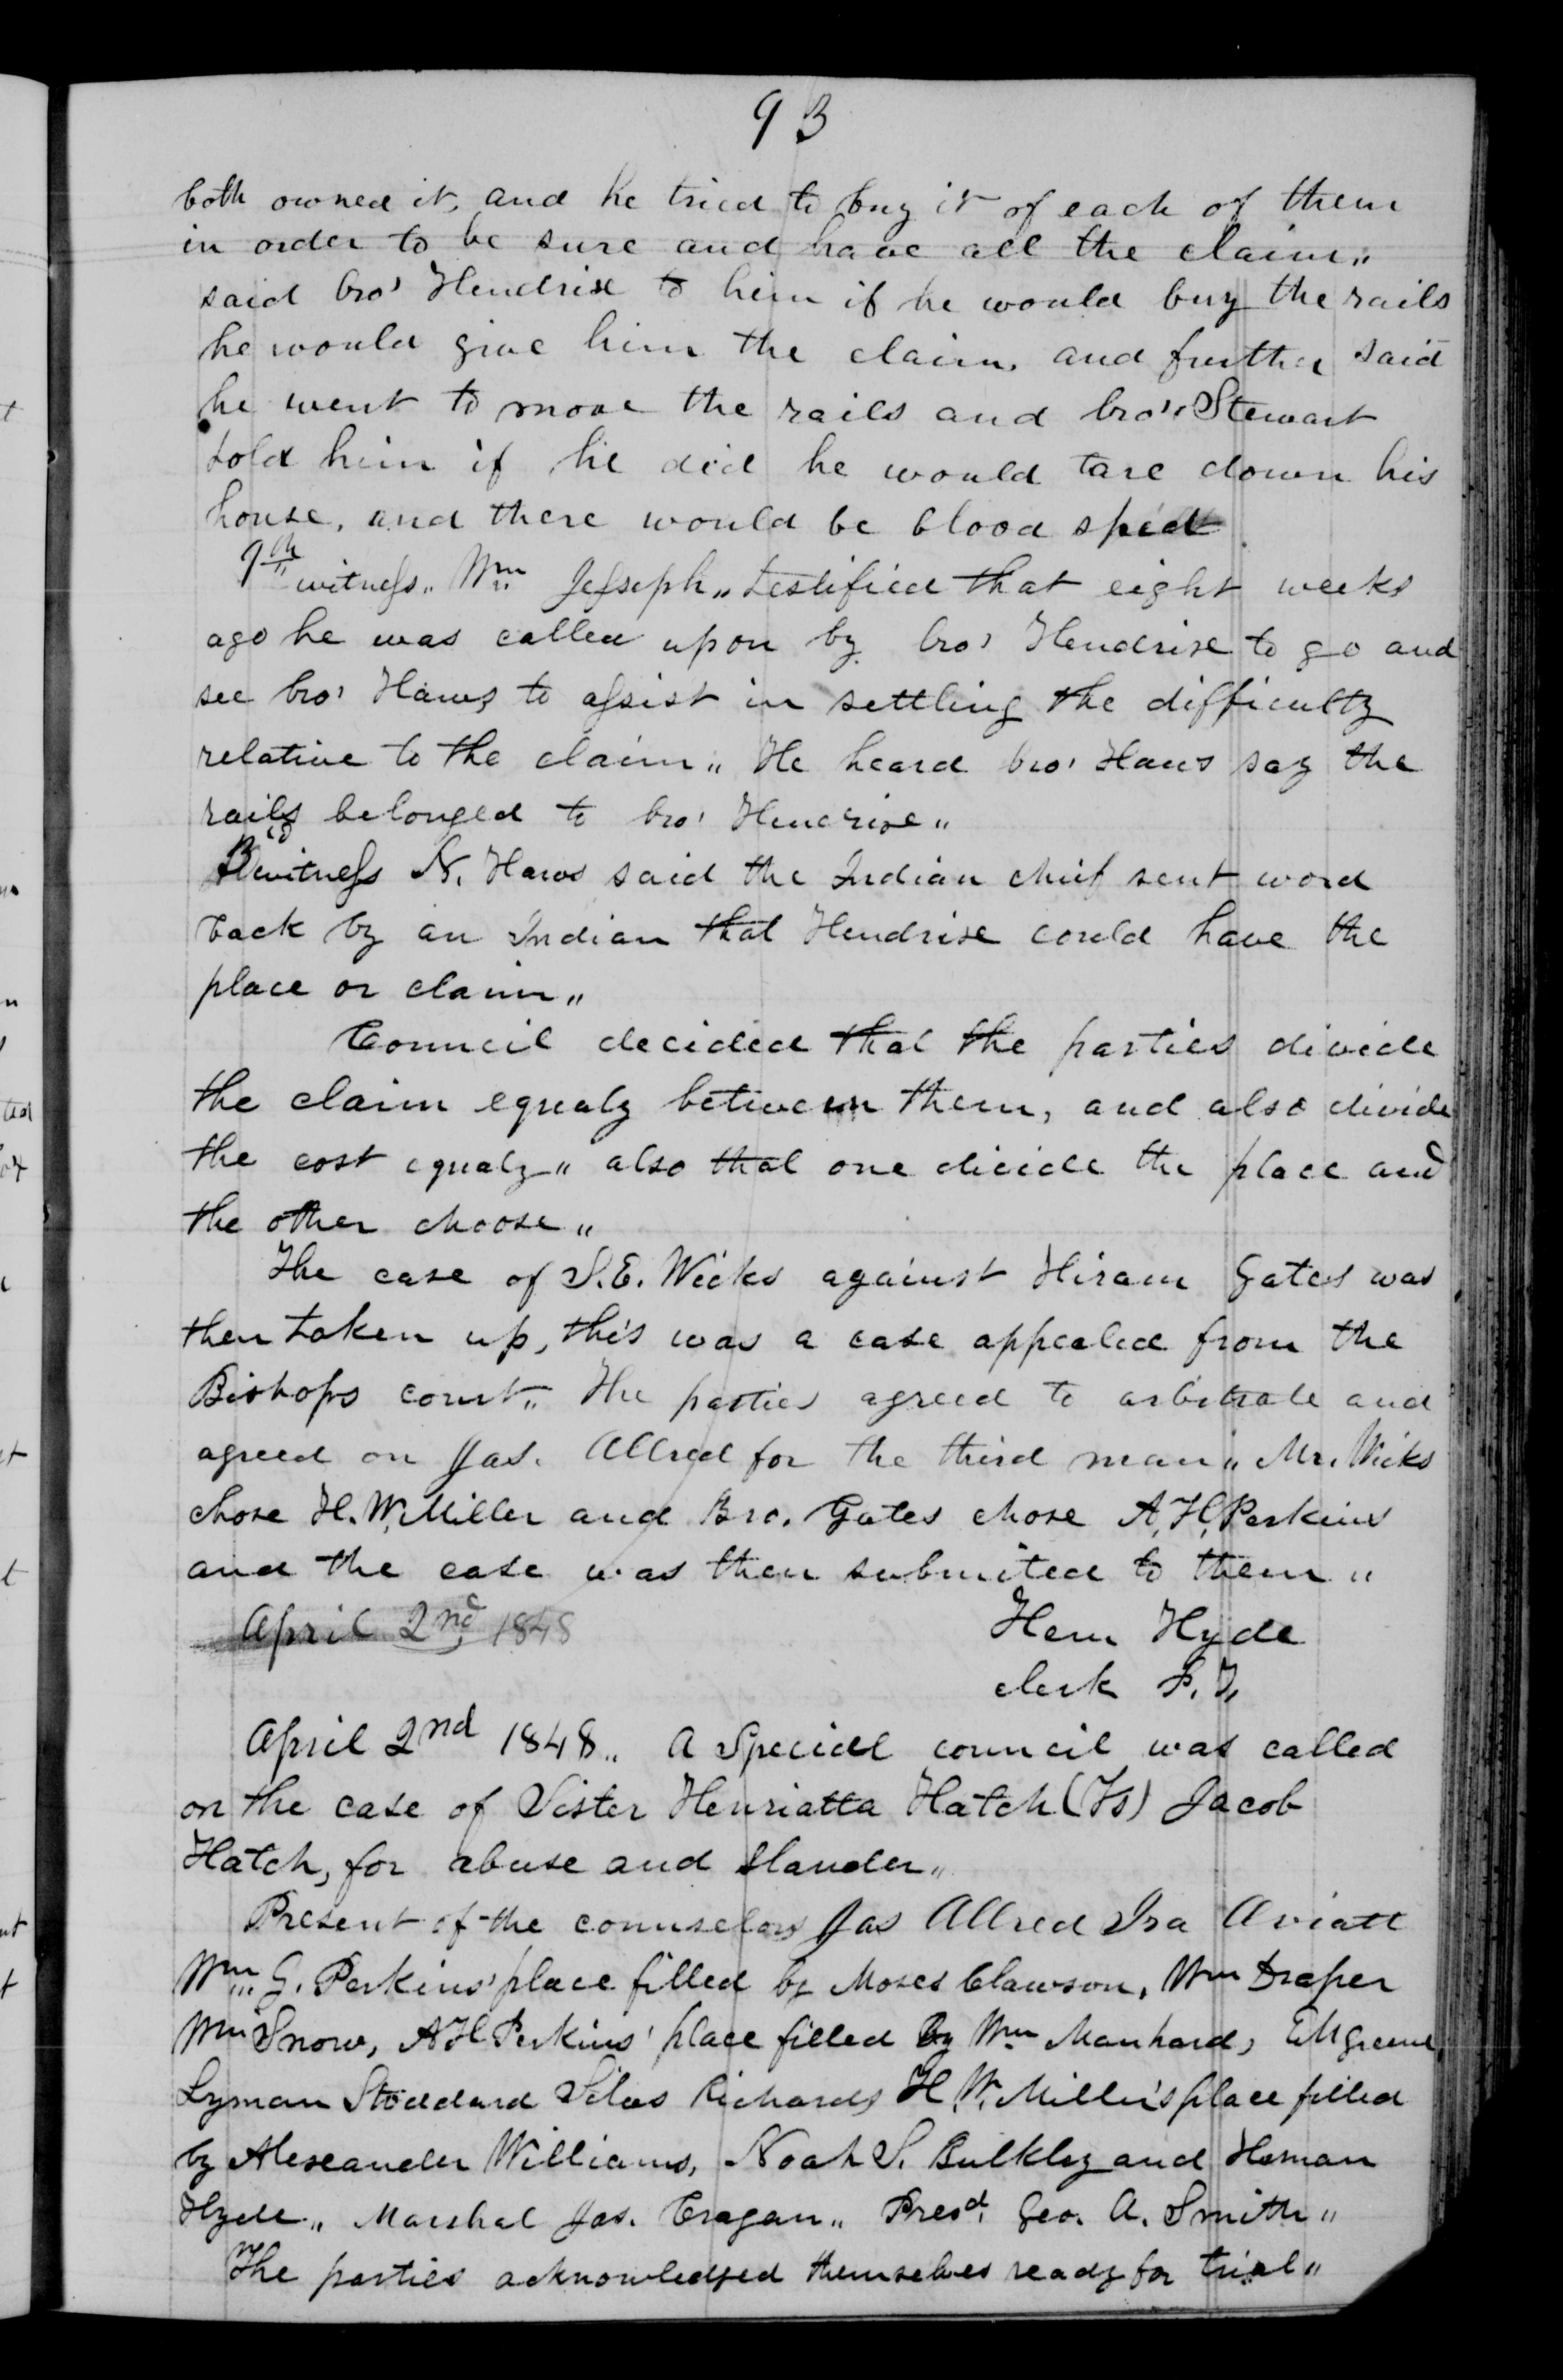 93
both owned it, and he tried to buy it of each of them
in order to be sure and have all the claim"
said bro' Hendrix to him if he would buy the rails
he would give him the claim, and further said
he went to move the rails and bro' Stewart
told him if he did he would tare down his
house, and there would be blood spilt
9th witness" Wm Jesseph" testified that eight weeks
ago he was called upon by bro' Hendrixe to go and
see bro' Haws to assist in settling the difficulty
relative to the claim" He heard bro' Haws say the
rails belonged to bro' Hendrixe"
witness N. Haws said the Indian chief sent word
back by an Indian that Hendrixe could have the
place or claim"
Council decided that the parties divide
the claim equaly between them, and also divide
the cost equaly" also that one divide the place and
the other choose"
The case of S.E. Wicks against Hiram Gates was
then taken up, this was a case appealed from the
Bishops court" The parties agreed to arbitrate and
agreed on Jas. Allred for the third man" Mr. Wicks
chose H. W. Miller and Bro. Gates chose A. H. Perkins
and the case was then submited to them"
April 2nd 1848
Hem Hyde
clerk P. T.
April 2nd 1848" A Special council was called
on the case of Sister Henriatta Hatch (Vs) Jacob
Hatch, for abuse and slander"
Present of the counselors Jas Allred Ira Aviatt
Wm G. Perkins' place filled by Moses Clawson, Wm Draper
Wm Snow, A H Perkins' place filled By Wm Manhard, E M Greene
Lyman Stoddard Silas Richards H. W. Miller's place filled
by Alexeander Williams, Noah S. Bulkley and Heman
Hyde" Marshal Jas. Cragan" Presd. Geo. A. Smith"
The parties acknowledged themselves ready for trial"